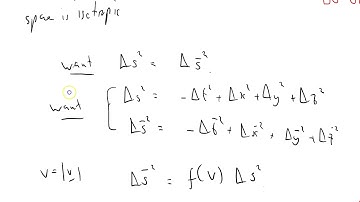 space is isotropic
want Δs² = Δs̄²
want { Δs² = -Δt² + Δx² + Δy² + Δz²
Δs̄² = -Δt̄² + Δx̄² + Δȳ² + Δz̄²
v = |v| Δs̄² = f(v) Δs²